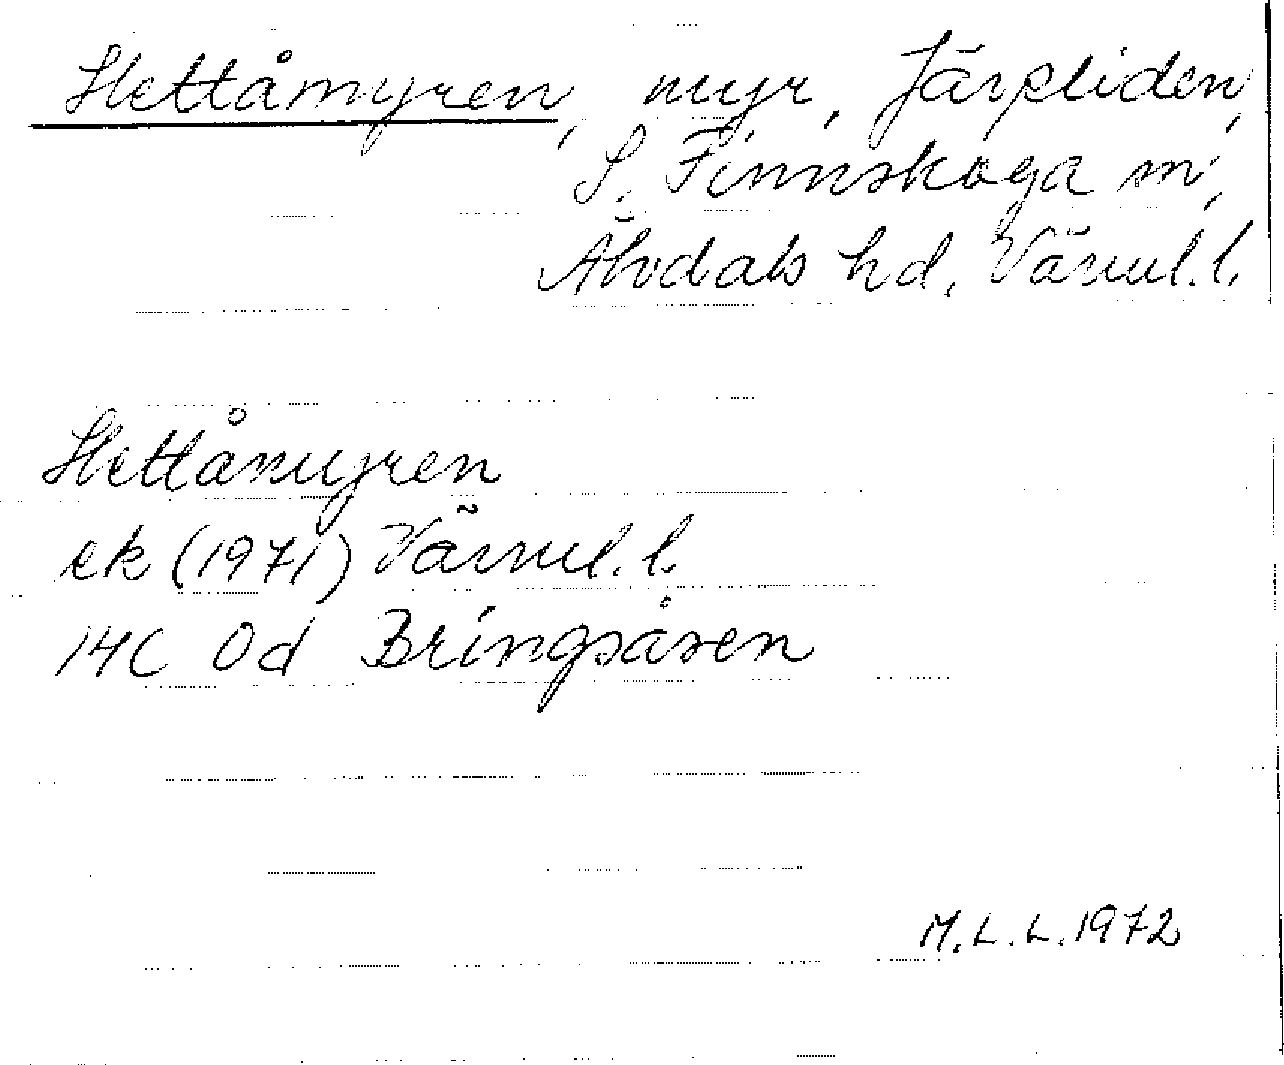 Slettåmyren, myr, Järpliden,
S. Finnskoga sn,
Älvdals hd, Värml. l.
Slettåmyren
ek (1971) Värml. l.
14C 0d Bringsåsen
M.L.L. 1972